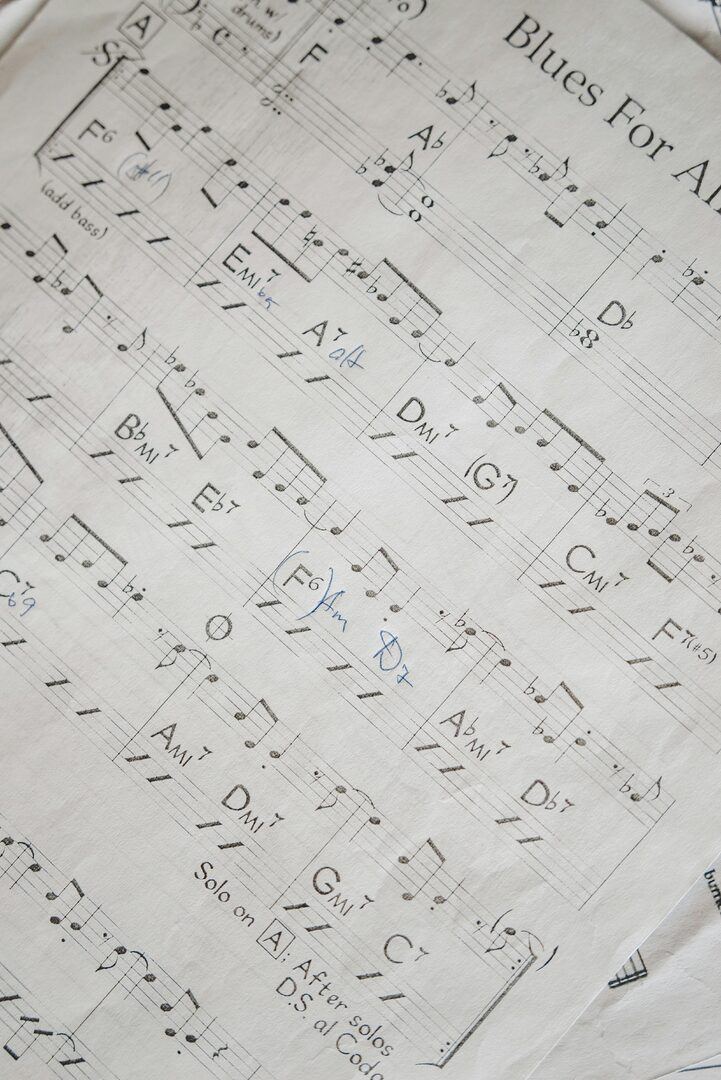 Blues For
w/
drums)
F A♭ D♭
A
F6 (#11) EMI7 A7 alt DMI7 (G7) CMI7 F7(#5)
(add bass)
3
B♭MI7 E♭7 (F6) Am D7 A♭MI7 D♭7
C7 b9 AMI7 DMI7 GMI7 C7
Solo on A; After solos
D.S. al Coda